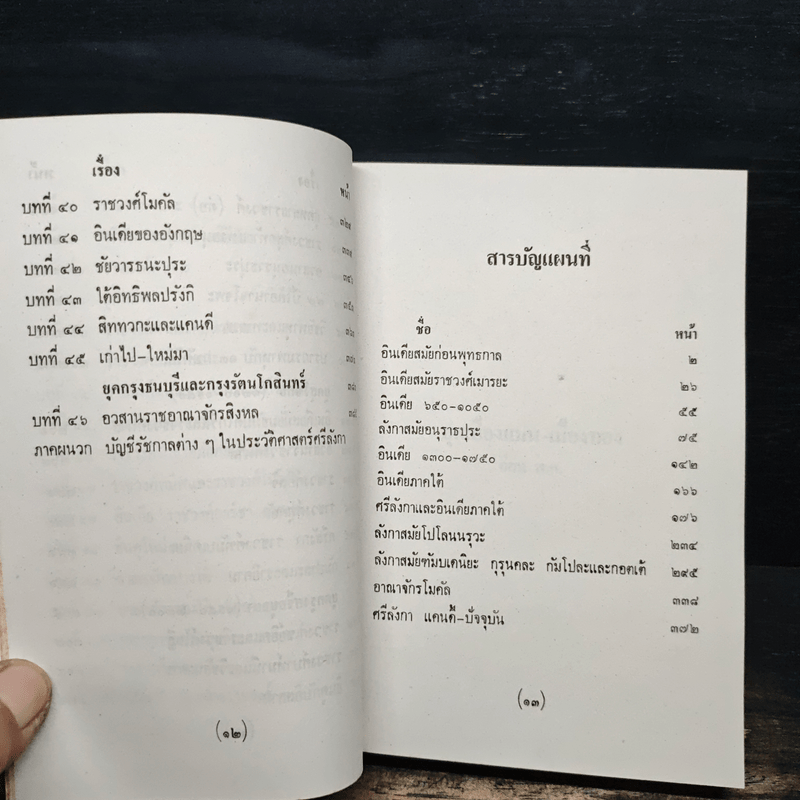 เรื่อง
หน้า
บทที่ ๔๐ ราชวงศ์โมคัล
บทที่ ๔๑ อินเดียของอังกฤษ
บทที่ ๔๒ ชัยวารธนะปุระ
บทที่ ๔๓ ใต้อิทธิพลปรังกิ
บทที่ ๔๔ สิททวกะและแคนดี
บทที่ ๔๕ เก่าไป-ใหม่มา
ยุคกรุงธนบุรีและกรุงรัตนโกสินทร์
บทที่ ๔๖ อวสานราชอาณาจักรสิงหล
ภาคผนวก บัญชีรัชกาลต่าง ๆ ในประวัติศาสตร์ศรีลังกา
(๑๒)
สารบัญแผนที่
ชื่อ หน้า
อินเดียสมัยก่อนพุทธกาล ๒
อินเดียสมัยราชวงศ์เมารยะ ๒๖
อินเดีย ๖๕๐-๑๐๕๐ ๕๕
ลังกาสมัยอนุราธปุระ ๗๕
อินเดีย ๑๓๐๐-๑๗๕๐ ๑๔๒
อินเดียภาคใต้ ๑๖๖
ศรีลังกาและอินเดียภาคใต้ ๑๗๖
ลังกาสมัยโปโลนนรุวะ ๒๓๔
ลังกาสมัยฑัมบเดนิยะ กุรุนคละ กัมโปละและกอตเต้ ๒๙๕
อาณาจักรโมคัล ๓๓๘
ศรีลังกา แคนดี-ปัจจุบัน ๓๗๒
(๑๓)